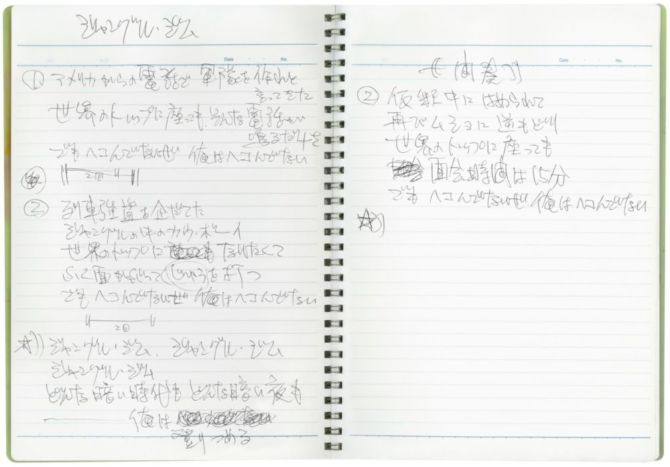 ジャングル・ジム
① アメリカからの電話で 軍隊を作れと
言ってきた
世界のトップに座っても そんな電話が
鳴るだけさ
でもヘコんでないぜ 俺はヘコんでない
2回
② 列車強盗を企だてた
ジャングルの中のカウ・ボーイ
世界のトップに なりたくて
でもヘコんでないぜ 俺はヘコんでない
2回
☆)) ジャングル・ジム、ジャングル・ジム
ジャングル・ジム
どんな暗い時代も どんな暗い夜も
俺は
登りつめる
《間奏》
② 仮釈中に はめられて
再びムショに逆もどり
世界のトップに座っても
面会時間は15分
でも ヘコんでないぜ 俺はヘコんでない
☆))